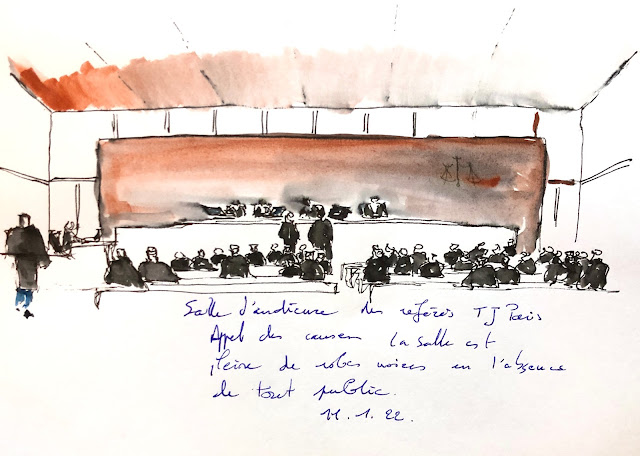 Salle d'audience des référés TJ Paris
Appel des causes la salle est
pleine de robes noires en l'absence
de tout public.
11.1.22.